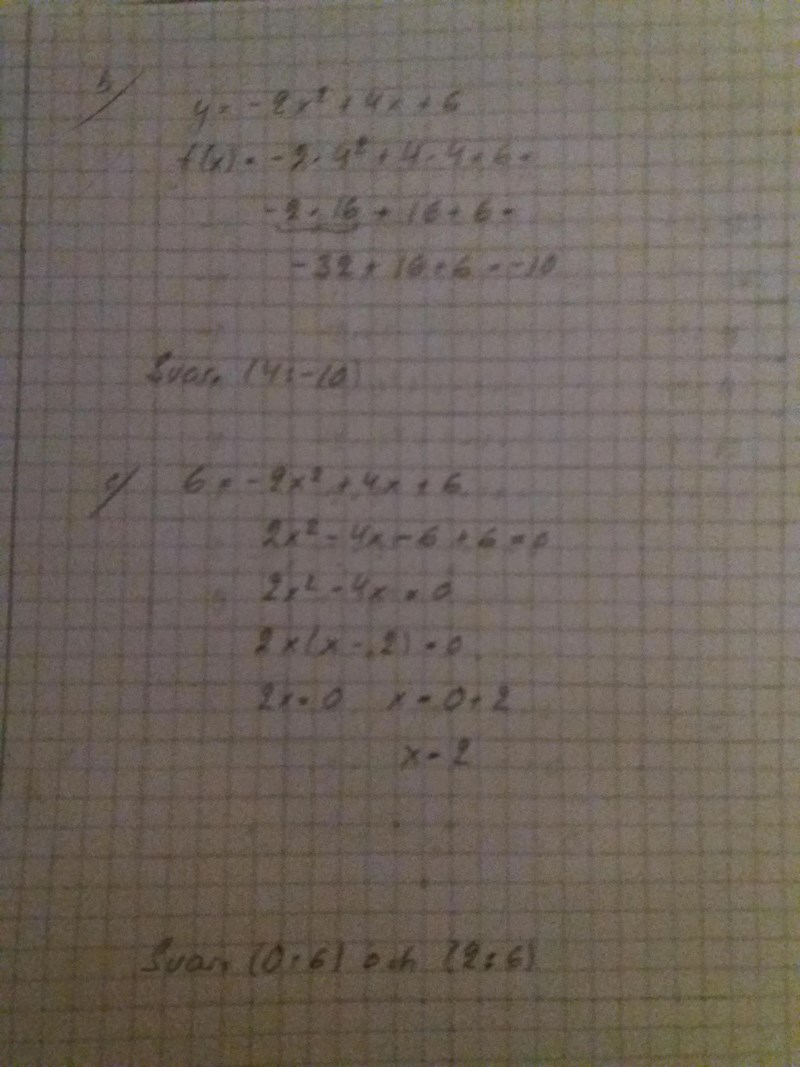 b/ y = -2x² + 4x + 6
f(x) = -2·4² + 4·4+6=
-2·16 + 16+6=
-32+16+6=-10
Svar: (4;-10)
c/ 6 = -2x² + 4x + 6
2x² - 4x - 6 + 6 = 0
2x² - 4x = 0
2x(x-2) = 0
2x=0 x=0+2
x=2
Svar: (0;6) och (2;6)